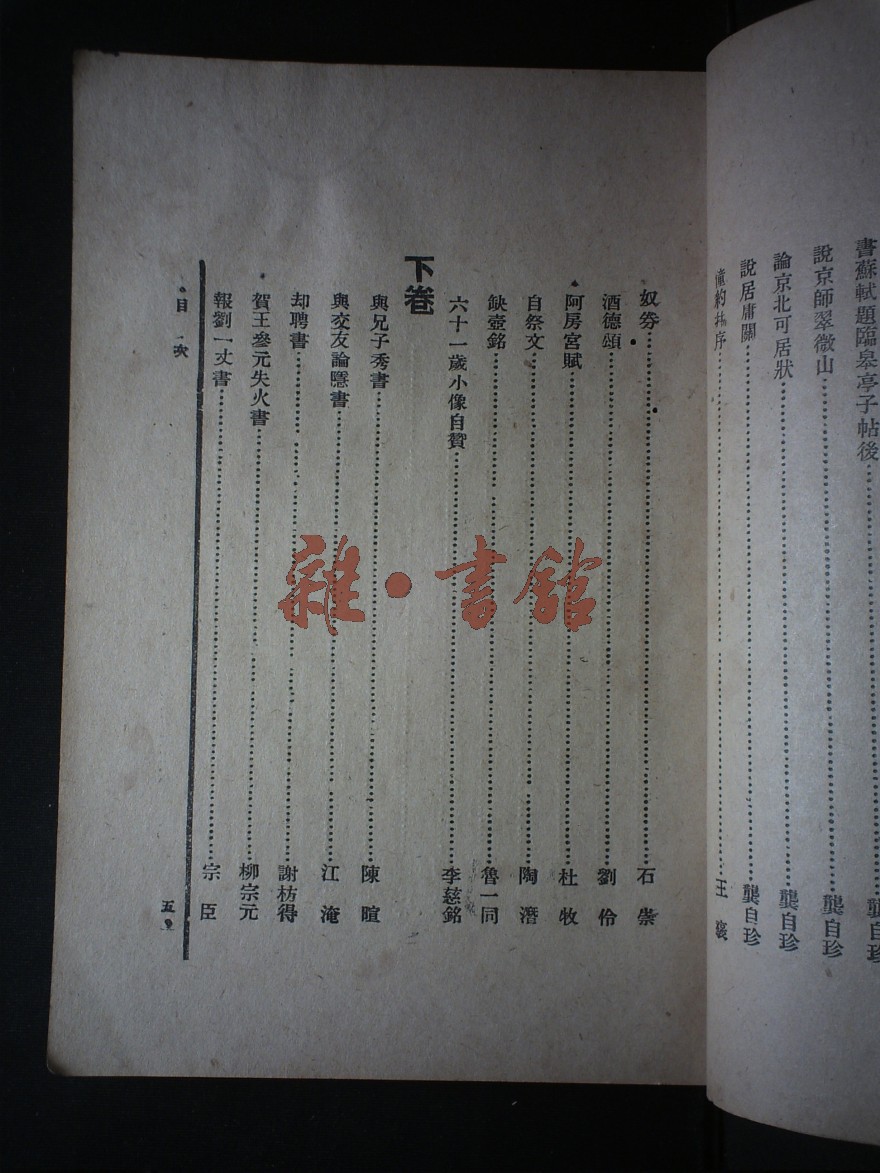 書蘇軾題臨皋亭子帖後……龔自珍
說京師翠微山……龔自珍
論京北可居狀……龔自珍
說居庸關……龔自珍
僮約并序……王襃
奴券……石崇
酒德頌……劉伶
阿房宮賦……杜牧
自祭文……陶潛
缺壺銘……魯一同
六十一歲小像自贊……李慈銘
下卷
與兄子秀書……陳暄
與交友論隱書……江淹
却聘書……謝枋得
賀王參元失火書……柳宗元
報劉一丈書……宗臣
目次
五
雜·書館